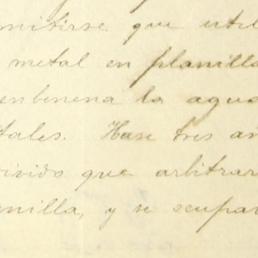 mitirse que util
metal en planilla
enbenena la agua
tales. Hase tres an
vivido que arbitrar
anilla, y se ocupar